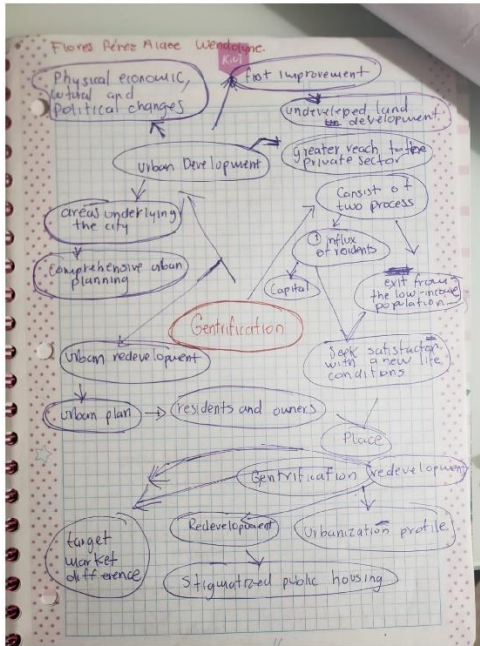 Florez Pérez Alaee Wendolyne
Kiwi
Physical economic,
cultural and
Political changes
first improvement
undeveloped land
development
Greater reach to the
Private sector
Urban Development
Consist of
two process
areas underlying
the city
① influx
of residents
comprehensive urban
planning
Capital
exit from
the low-income
population
Gentrification
Urban redevelopment
Seek satisfacton
with a new life
conditions
Urban plan
residents and owners
Place
Gentrification
redevelopment
target
market
difference
Redevelopment
Urbanization profile
Stigmatized public housing